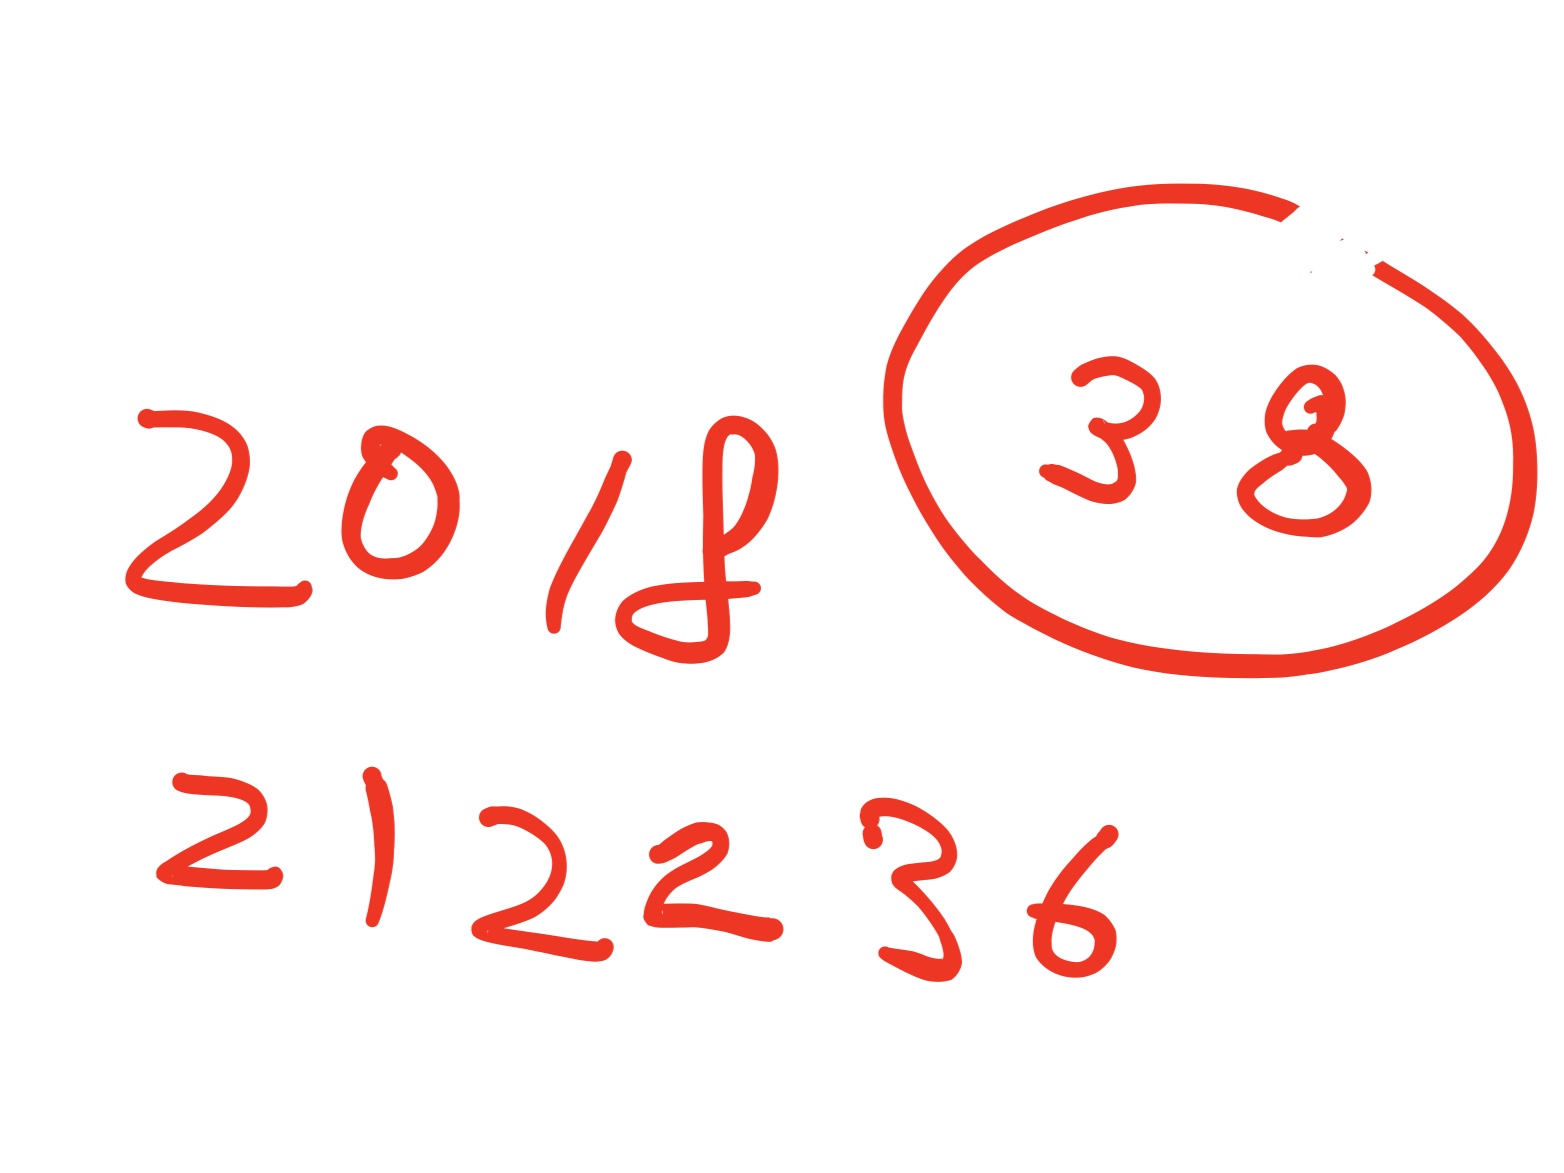 2018 38
212236